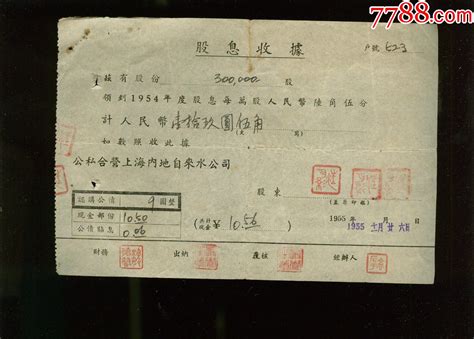 7788.com
股息收據
戶號 523
茲有股份 300,000 股
領到1954年度股息每萬股人民幣陸角伍分
計人民幣壹拾玖圓伍角
如數照收此據
公私合營上海內地自來水公司
股東
(蓋原印鑑)
認購公債 9 圓整
現金部份 10.50
公債貼息 0.06
(共計現金) ¥ 10.56
1955年 月 日
1955
財務 出納 覆核 經辦人